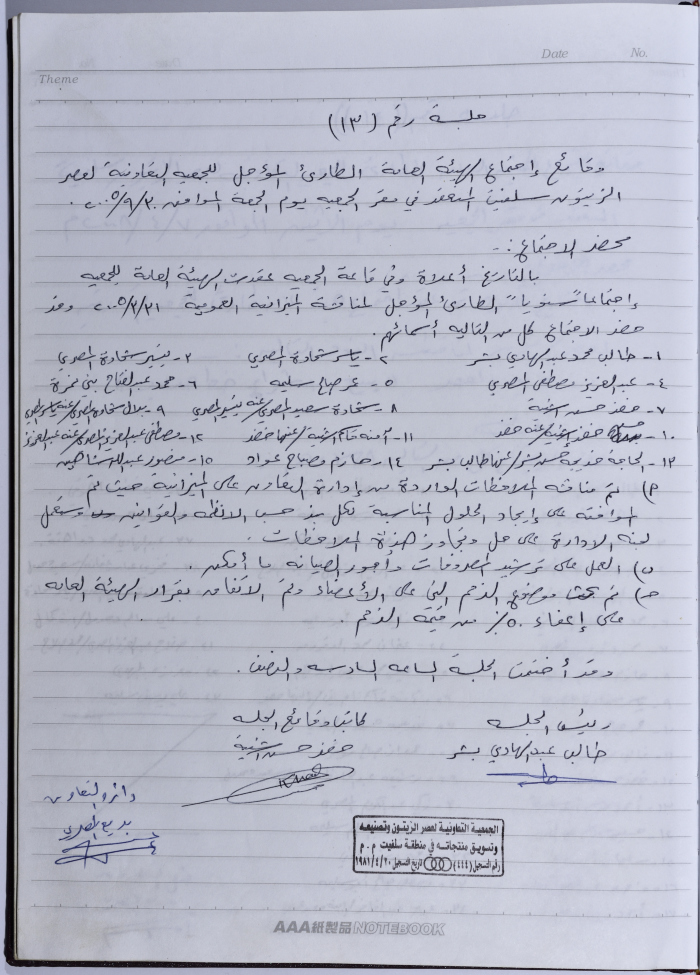 Date No.
Theme
جلسة رقم (١٣)
وقائع إجتماع الهيئة العامة الطارئ المؤجل للجمعية التعاونية لعصر
الزيتون سلفيت المنعقد في مقر الجمعيه يوم الجمعة الموافق ٢٠٠٥/٩/٣٠.
محضر الاجتماع :-
بالتاريخ أعلاة وفي قاعة الجمعيه عقدت الهيئة العامة للجمعيه
إجتماعاً سنوياً الطارئ المؤجل لمناقشة الميزانية العمومية ٢٠٠٥/٣/٣١ وقد
حضر الاجتماع كل من التاليه أسمائهم.
١- طالب محمد عبدالهادي بشر ٢- ياسر شحادة المصري ٣- تيسير شحادة المصري
٤- عبدالعزيز مصطفى المصري ٥- عمر صالح سليمه ٦- محمد عبدالفتاح بني نمرة
٧- خضر حسن اشتية ٨- شحادة سعيد المصري/عنه تيسير المصري ٩- بلال شحادة المصري/عنه ياسر المصري
١٠- خضر اشتية/عنه خضر ١١- آمنه قاسم اشتية/عنها خضر ١٢- مصطفى عبدالعزيز المصري/عنه عبدالعزيز
١٣- الحاجة خديجه حسن بشر/عنها طالب بشر ١٤- حازم مصباح عواد ١٥- منصور عبدالله شاهين
أ) تم مناقشه الملاحظات الواردة من إدارة التعاون على الميزانيه حيث تم
الموافقه على إيجاد الحلول المناسبة لكل بند حسب الانظمه والقوانين وستعمل
لجنه الادارة على حل وتجاوز هذة الملاحظات.
ب) العمل على ترشيد المصروفات وأجور الصيانه ما أمكن.
ج) تم بحث موضوع الذمم التي على الأعضاء وتم الاتفاق بقرار الهيئة العامه
على إعفاء ٥٠٪ من قيمة الذمم.
وقد أختتمت الجلسة الساعه السادسه والنصف.
رئيس الجلسه كاتب وقائع الجلسه
طالب عبدالهادي بشر خضر حسن اشتية
دائرة التعاون
بديع المصري
الجمعية التعاونية لعصر الزيتون وتصنيعه
وتسويق منتجاته في منطقة سلفيت م.م
رقم التسجيل (٤٤٤) تاريخ التسجيل ١٩٨١/٤/٢٠
AAA紙製品NOTEBOOK